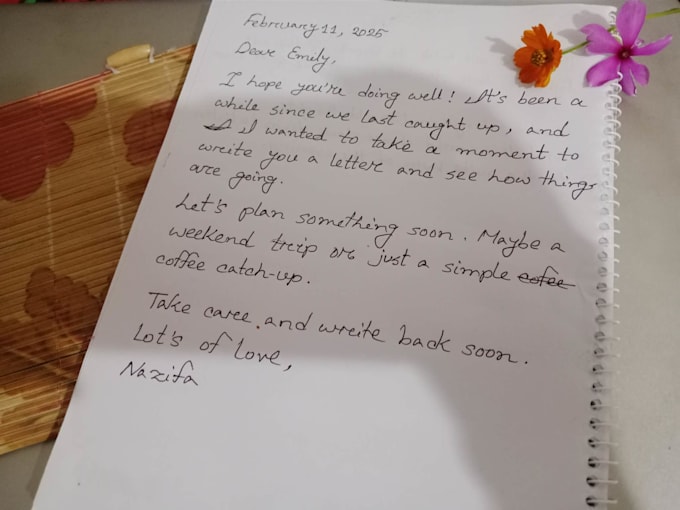 February 11, 2025
Dear Emily,
I hope you're doing well! It's been a
while since we last caught up, and
I wanted to take a moment to
write you a letter and see how things
are going.
Let's plan something soon. Maybe a
weekend trip or just a simple
coffee catch-up.
Take care and write back soon.
Lot's of love,
Nazifa